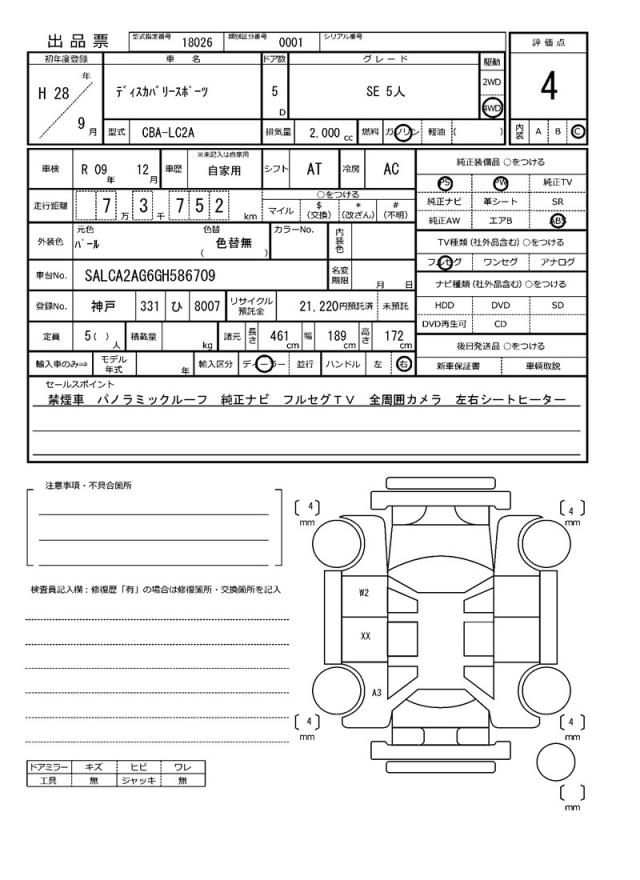 出品票 型式指定番号 18026 類別区分番号 0001 シリアル番号
初年度登録 車名 ドア数 グレード 駆動 評価点
H 28 年 9 月 ディスカバリースポーツ 5 D SE 5人 2WD 4WD 4
型式 CBA-LC2A 排気量 2,000 cc 燃料 ガソリン 軽油 ( ) 内装 A B C
車検 R 09 年 12 月 車歴 ※未記入は自家用 自家用 シフト AT 冷房 AC 純正装備品 ○をつける
PS PW 純正TV
走行距離 7 万 3 千 7 5 2 km ○をつける
マイル $ (交換) * (改ざん) # (不明)
純正ナビ 革シート SR
純正AW エアB ABS
外装色 元色 パール 色替 色替無 ( ) カラーNo. 内装色
TV種類(社外品含む)○をつける
フルセグ ワンセグ アナログ
車台No. SALCA2AG6GH586709 名変期限 月 日
ナビ種類(社外品含む)○をつける
登録No. 神戸 331 ひ 8007 リサイクル預託金 21,220 円預託済 未預託
HDD DVD SD
DVD再生可 CD
定員 5( ) 人 積載量 kg 諸元 長さ 461 cm 幅 189 cm 高さ 172 cm
後日発送品 ○をつける
輸入車のみ⇒ モデル年式 年 輸入区分 ディーラー 並行 ハンドル 左 右
新車保証書 車輌取説
セールスポイント
禁煙車 パノラミックルーフ 純正ナビ フルセグTV 全周囲カメラ 左右シートヒーター
注意事項・不具合箇所
[ 4 ] mm
[ 4 ] mm
検査員記入欄:修復歴「有」の場合は修復箇所・交換箇所を記入
W2
XX
A3
[ 4 ] mm
[ 4 ] mm
ドアミラー キズ ヒビ ワレ
工具 無 ジャッキ 無
[ ] mm